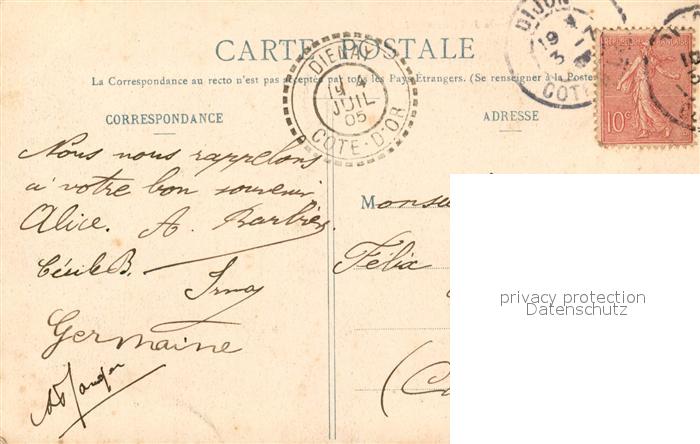 CARTE POSTALE
La Correspondance au recto n'est pas acceptée par tous les Pays Étrangers. (Se renseigner à la Poste
CORRESPONDANCE
ADRESSE
DIJON
COTE
DIENAY
19 4
JUIL
05
COTE-D'OR
REPUBLIQUE FRANÇAISE
10c
Nous nous rappelons
à votre bon souvenir
Alice. A. Barbier
Cécile B.
Irma
Germaine
Monsieu
Félix
privacy protection
Datenschutz